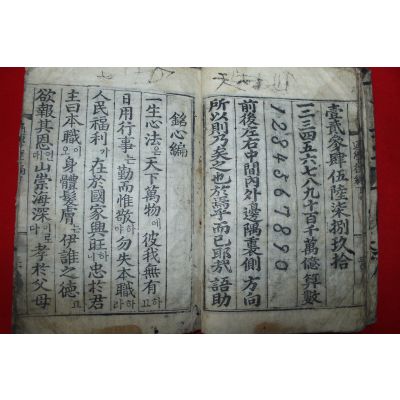 壹貳參肆伍陸柒捌玖拾
一二三四五六七八九十百千萬億算數
1234567890
前後左右中間內外邊隅裏側方向
所以則乃矣之也於焉乎而已耶哉語助
銘心編
一生心法은天下萬物에彼我無有하고
日用行事는勤而惟敬하야勿失本職하라
人民福利가在於國家興旺이니忠於君
主曰本職이오身體髮膚는伊誰之德고
欲報其恩인에山崇海深이로다孝於父母